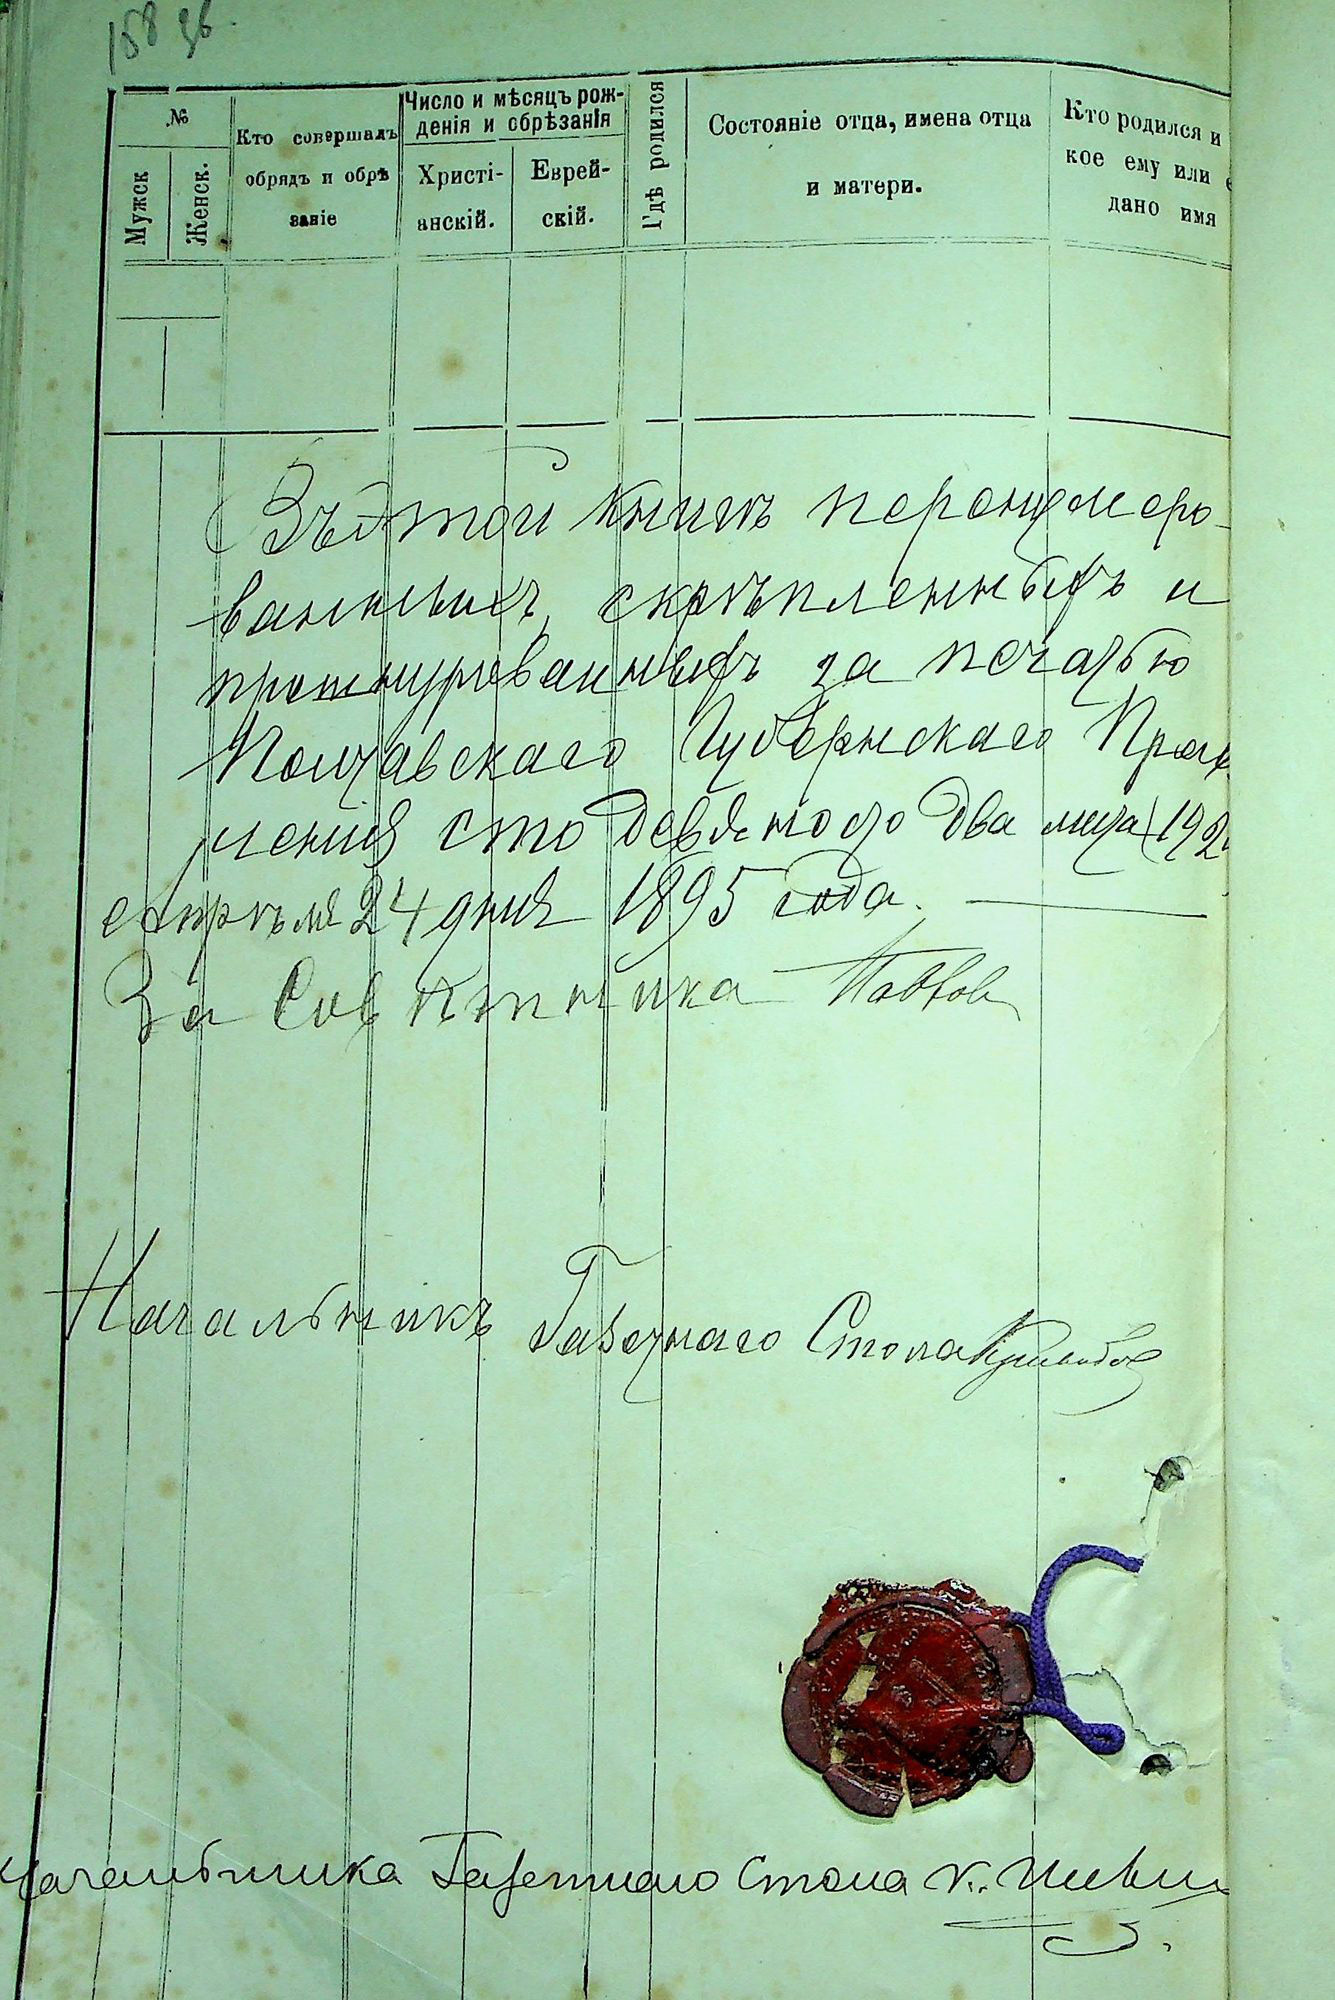 158 зв.
№
Мужск
Женск.
Кто совершалъ
обрядъ и обрѣ
заніе
Число и мѣсяцъ рож-
денія и обрѣзанія
Христі-
анскій.
Еврей-
скій.
Гдѣ родился
Состояніе отца, имена отца
и матери.
Кто родился и
кое ему или е
дано имя
Въ этой книгѣ перенумеро-
ванныхъ, скрѣпленныхъ и
прошнурованныхъ за печатью
Полтавскаго Губернскаго Прав
ленія сто девяносто два листа (192
Апрѣля 24 дня 1895 года.
За Совѣтника
Начальникъ Газетнаго Стола
Начальника Газетнаго Стола К.